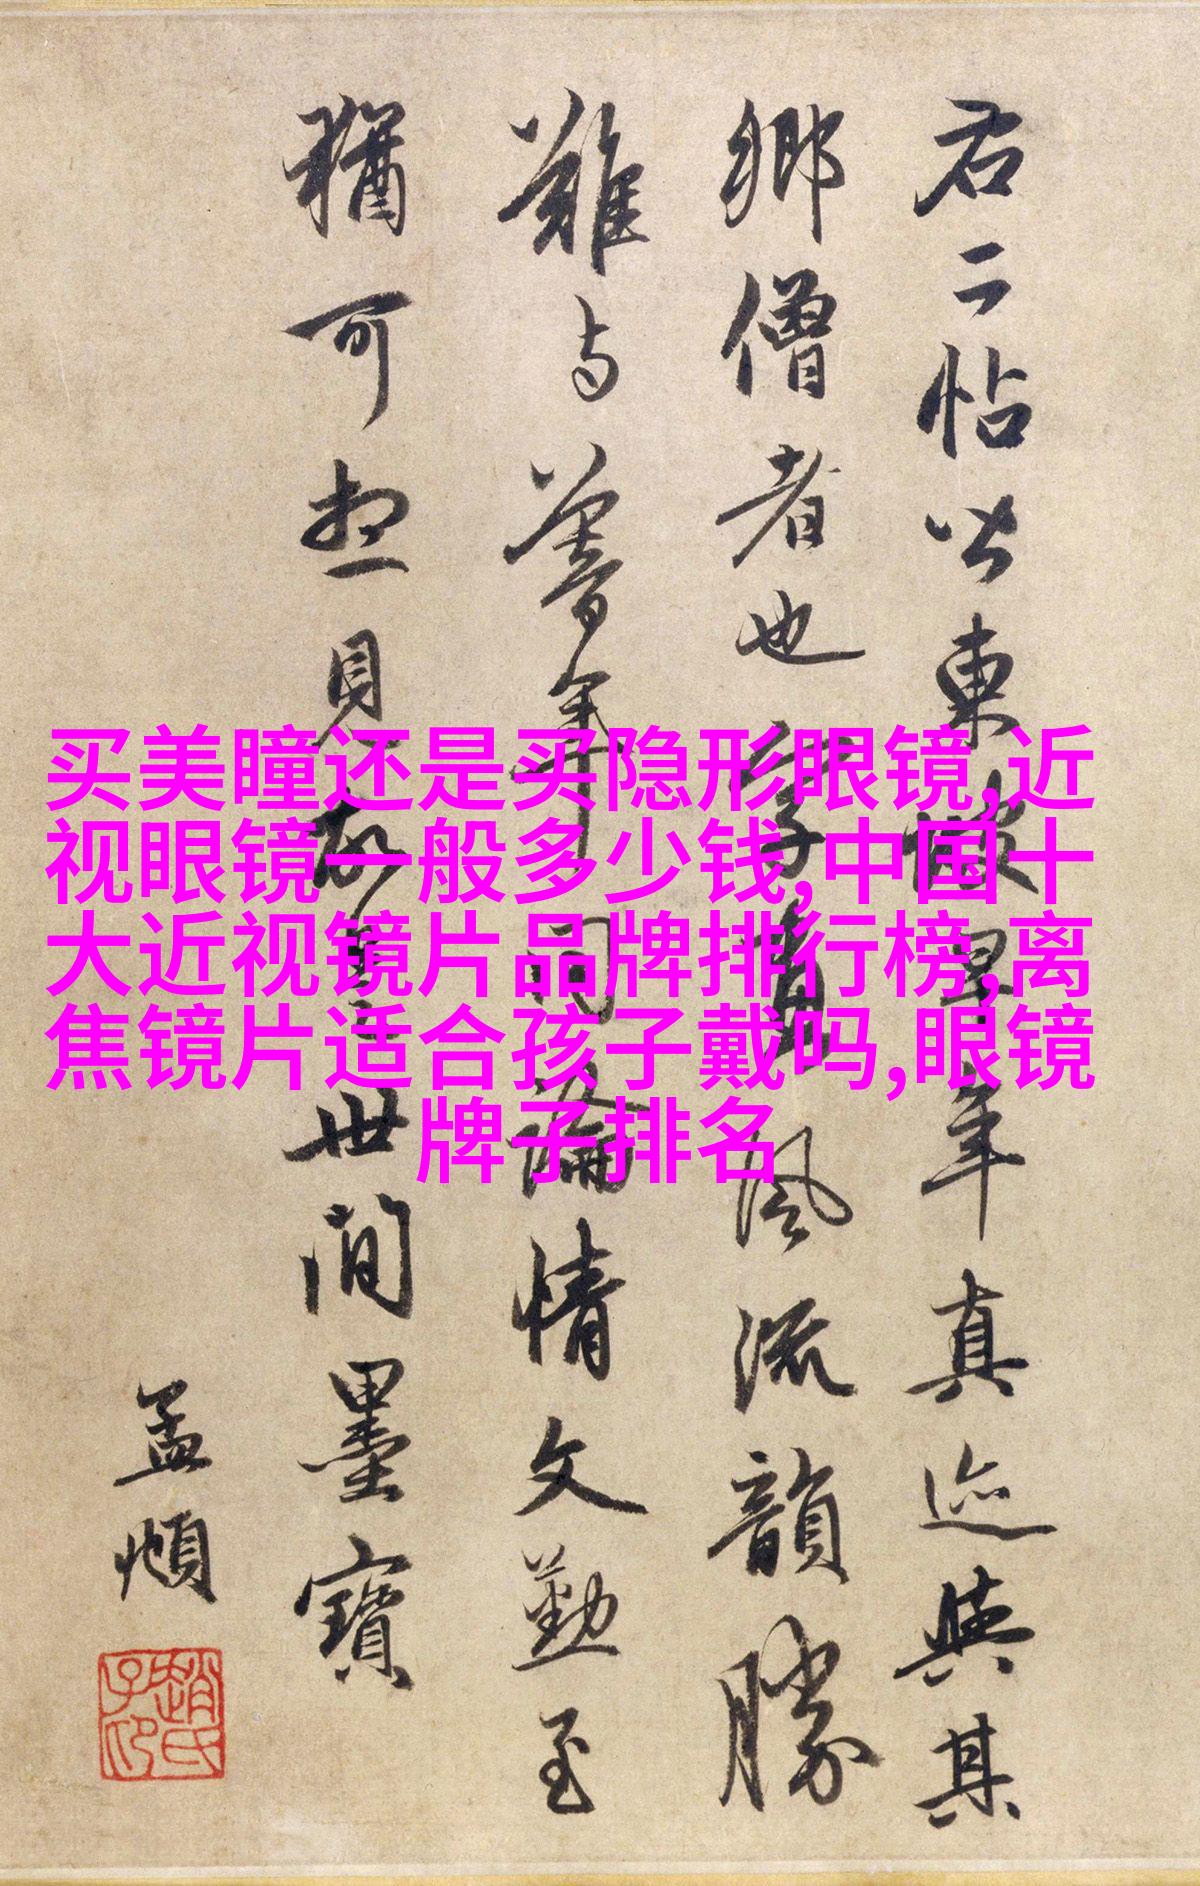 右二帖皆東坡早年真迹與其
鄉僧者也字畫風流韻勝
難与暮年同論情文勤至
猶可想見故是世間墨寶
孟頫
趙氏子昂
买美瞳还是买隐形眼镜,近
视眼镜一般多少钱,中国十
大近视镜片品牌排行榜,离
焦镜片适合孩子戴吗,眼镜
牌子排名